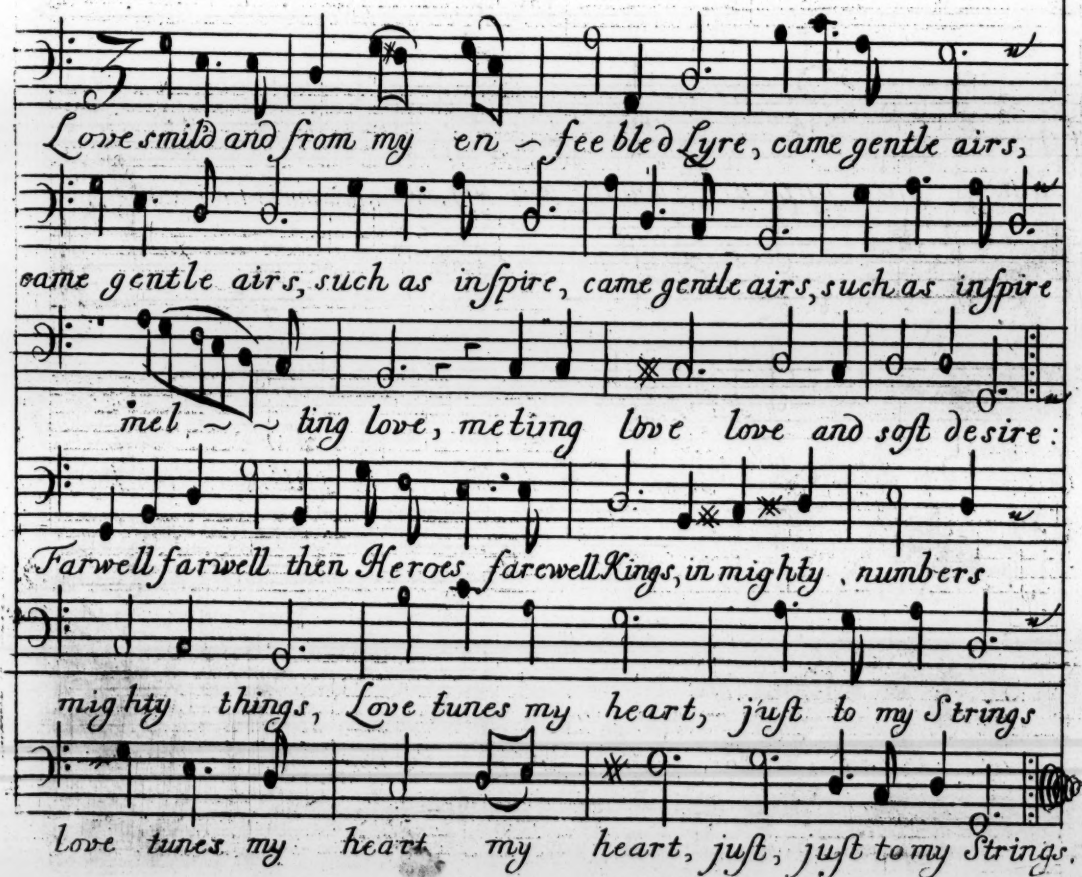 3
Love smil'd and from my en ~ feebled Lyre, came gentle airs,
came gentle airs, such as inſpire, came gentle airs, such as inſpire
mel ~ ~ ting love, meting love love and soft desire:
Farwell farwell then Heroes farewell Kings, in mighty numbers
mighty things, Love tunes my heart, juſt to my Strings
love tunes my heart my heart, juſt, juſt to my Strings.